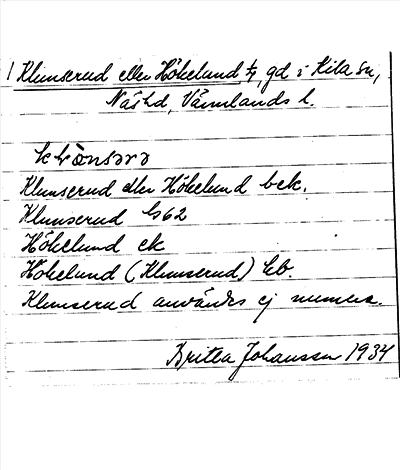 Klunserud eller Hökelund 1/1, gd i Kila sn,
Näshd, Värmlands l.
Klunserud eller Hökelund bek.
Klunserud GS62
Hökelund ek
Hökelund (Klunserud) kb.
Klunserud användes ej numera.
Britta Johansson 1934